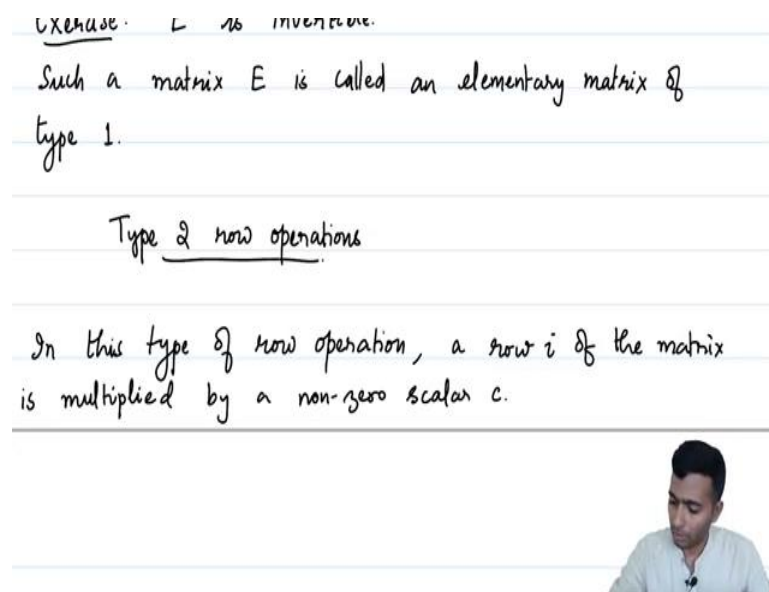 Exercise. E is invertible.
Such a matrix E is called an elementary matrix of
type 1.
Type 2 row operations
In this type of row operation, a row i of the matrix
is multiplied by a non-zero scalar c.